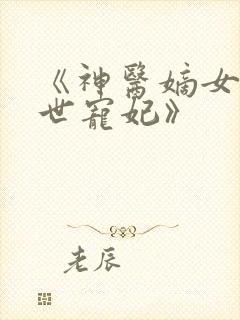 《神醫嫡女
世寵妃》
老辰